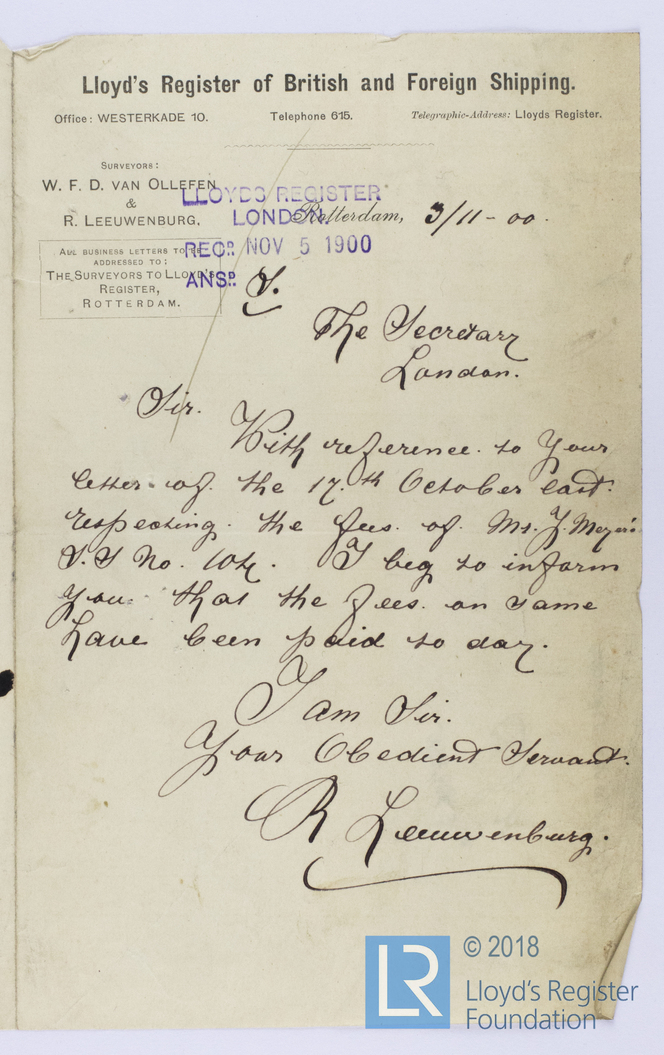 Lloyd's Register of British and Foreign Shipping.
Office: WESTERKADE 10. Telephone 615. Telegraphic-Address: Lloyds Register.
SURVEYORS:
W. F. D. VAN OLLEFEN
&
R. LEEUWENBURG.
ALL BUSINESS LETTERS TO BE
ADDRESSED TO:
THE SURVEYORS TO LLOYD'S
REGISTER,
ROTTERDAM.
LLOYDS REGISTER
LONDON.
RECD. NOV 5 1900
ANSD.
Rotterdam, 3/11-00.
The Secretary
London.
Sir.
With reference to Your
letter of the 17th October last
respecting the fees of Ms. J. Meyer's
S.S No. 104. I beg to inform
you that the fees on same
have been paid to day.
I am Sir.
Your Obedient Servant.
R Leeuwenburg.
LR
© 2018
Lloyd's Register
Foundation